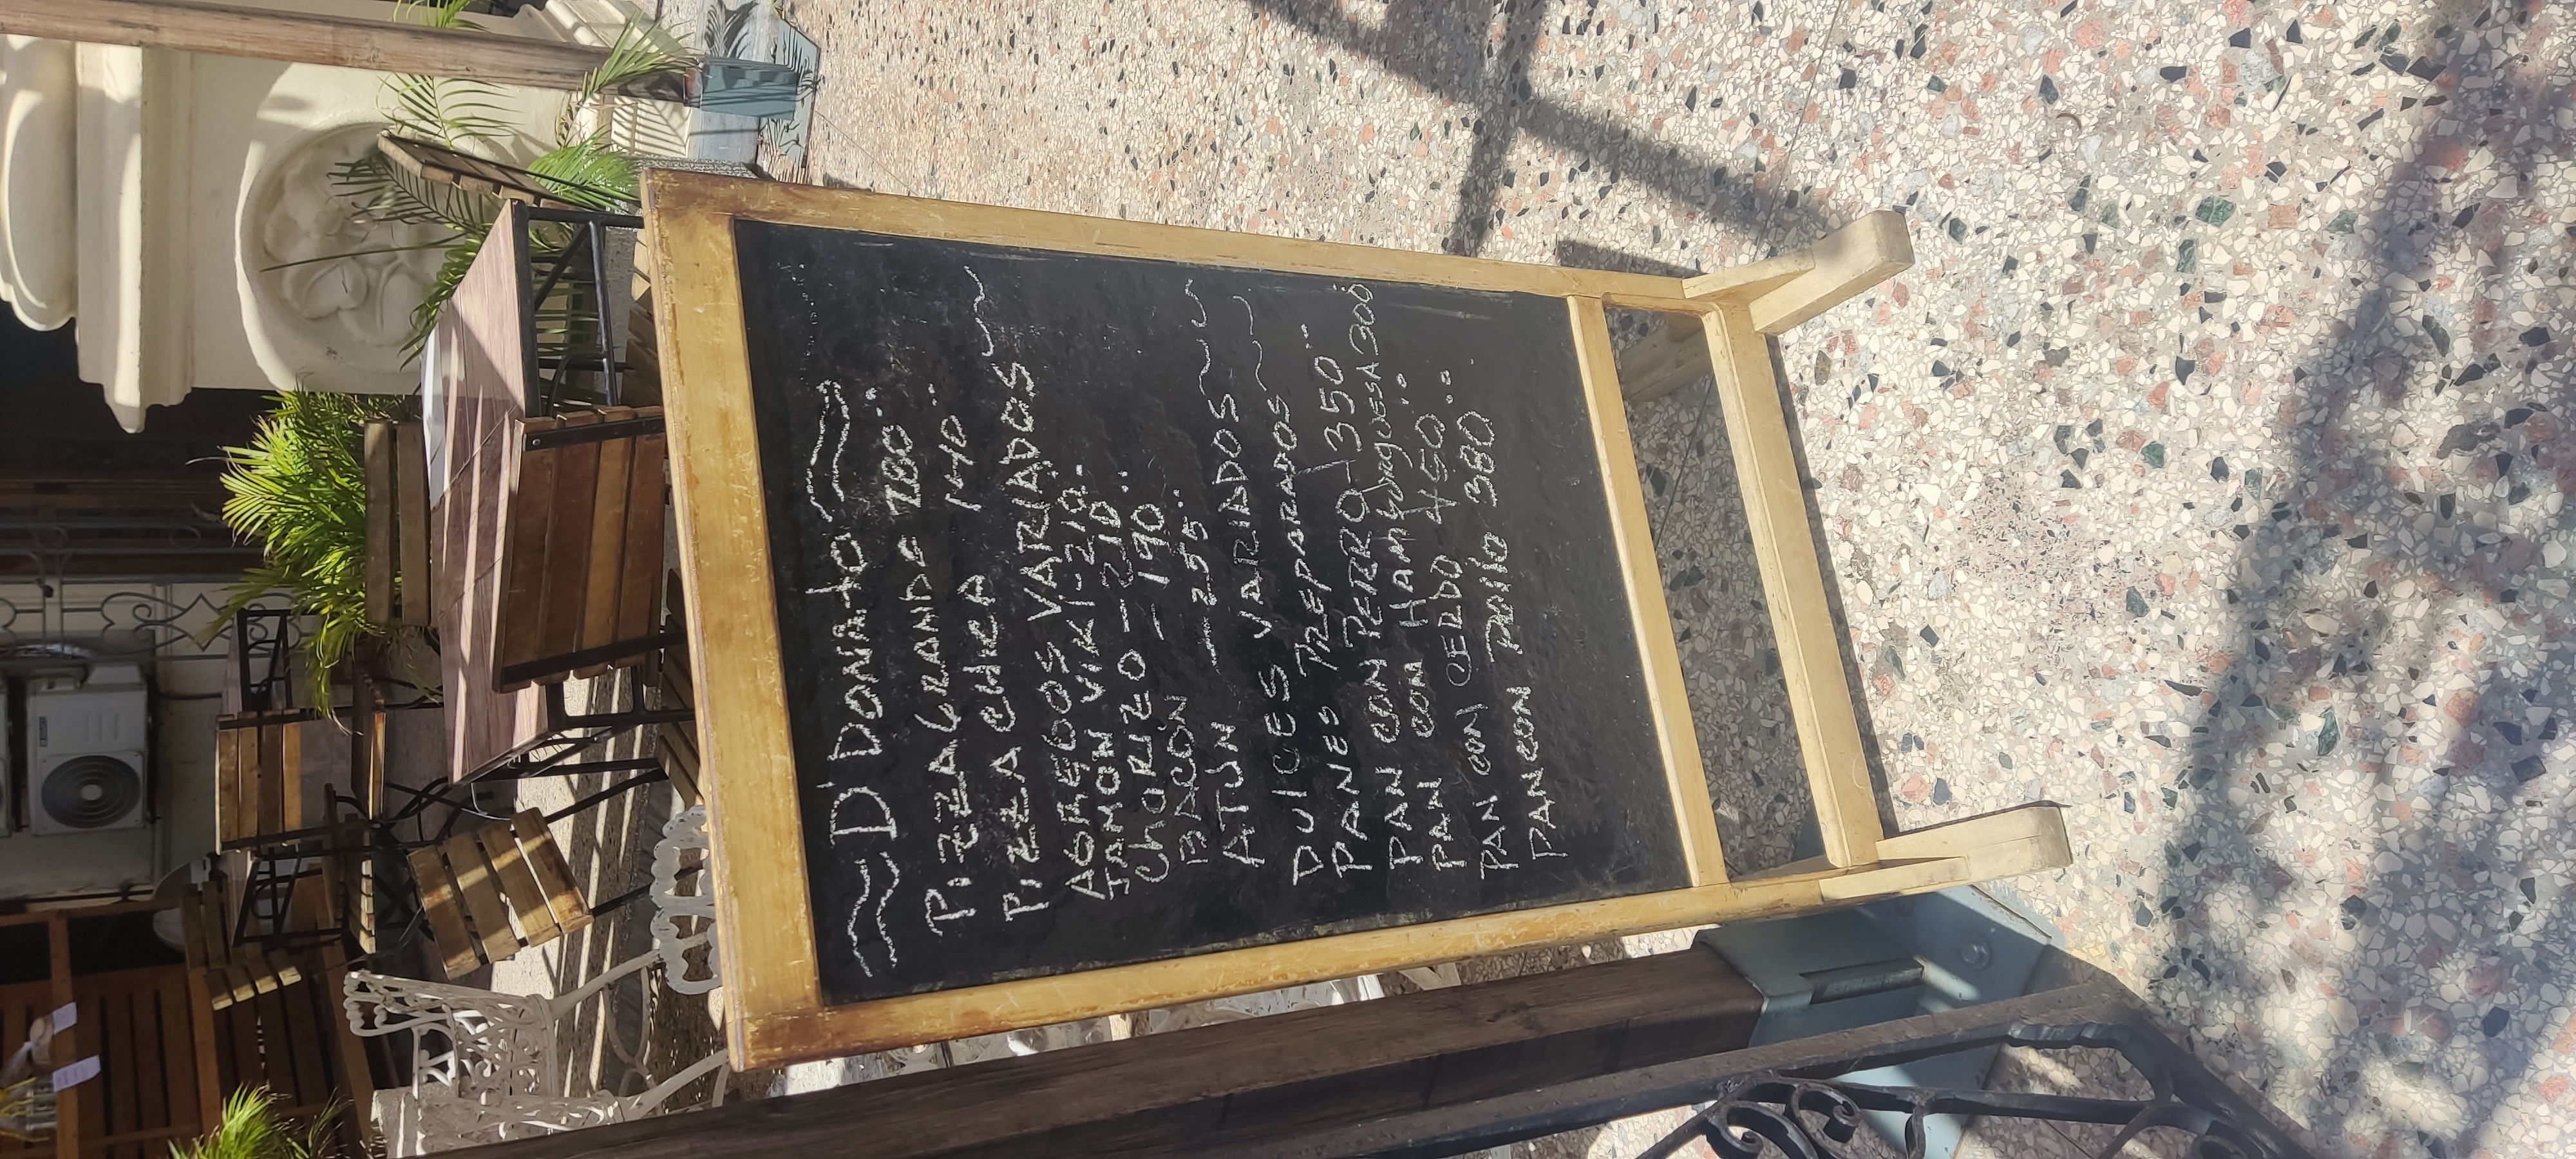 D'DONATO
PIZZA GRANDE 280
PIZZA CHICA 140
AGREGOS VARIADOS
JAMON VIKI - 210
ChORIZO - 210
BACON - 190
ATÚN - 255
DULCES VARIADOS
PANES PREPARADOS
PAN CON PERRO - 350
PAN CON HAMbURgUESA 300
PAN CON CERDO 450
PAN CON POllo 380